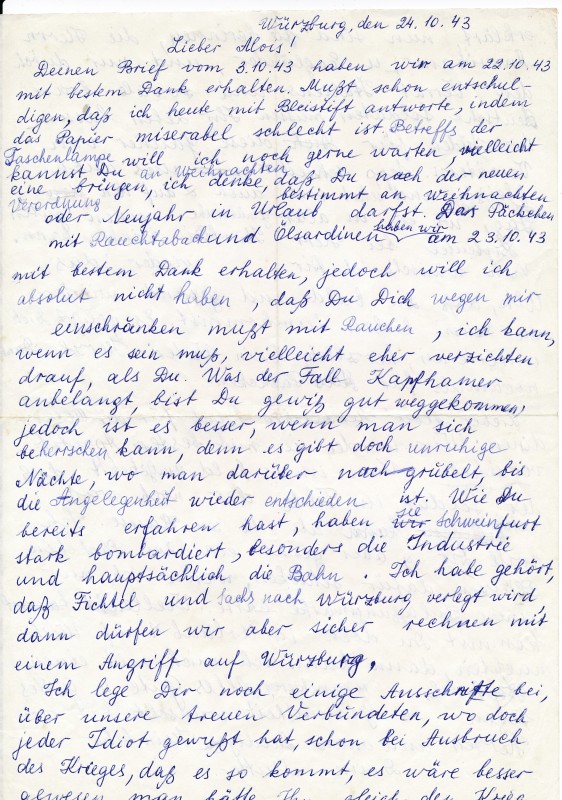 Würzburg, den 24.10.43
Lieber Alois!
Deinen Brief vom 3.10.43 haben wir am 22.10.43
mit bestem Dank erhalten. Mußt schon entschul-
digen, daß ich heute mit Bleistift antworte, indem
das Papier miserabel schlecht ist. Betreffs der
Taschenlampe will ich noch gerne warten, vielleicht
kannst Du an Weihnachten
eine bringen, ich denke, daß Du nach der neuen
Verordnung bestimmt an Weihnachten
oder Neujahr in Urlaub darfst. Das Päckchen
mit Rauchtabak und Ölsardinen haben wir am 23.10.43
mit bestem Dank erhalten, jedoch will ich
absolut nicht haben, daß Du Dich wegen mir
einschränken mußt mit Rauchen, ich kann,
wenn es sein muß, vielleicht eher verzichten
drauf, als Du. Was der Fall Kapfhamer
anbelangt, bist Du gewiß gut weggekommen,
jedoch ist es besser, wenn man sich
beherrschen kann, denn es gibt doch unruhige
Nächte, wo man darüber nachgrübelt, bis
die Angelegenheit wieder entschieden ist. Wie Du
bereits erfahren hast, haben sie Schweinfurt
stark bombardiert, besonders die Industrie
und hauptsächlich die Bahn. Ich habe gehört,
daß Fichtel und Sachs nach Würzburg verlegt wird,
dann dürfen wir aber sicher rechnen mit
einem Angriff auf Würzburg,
Ich lege Dir noch einige Ausschnitte bei,
über unsere treuen Verbündeten, wo doch
jeder Idiot gewußt hat, schon bei Ausbruch
des Krieges, daß es so kommt, es wäre besser
gewesen man hätte Ihn gleich den Krieg